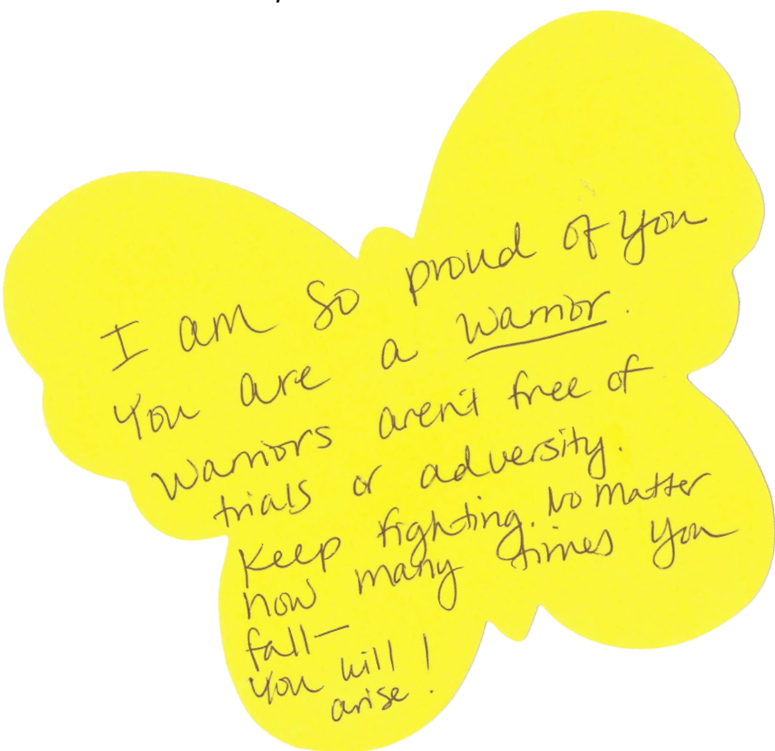 I am so proud of you
You are a warrior.
Warriors aren't free of
trials or adversity.
Keep fighting. No matter
how many times you
fall—
You will
arise!